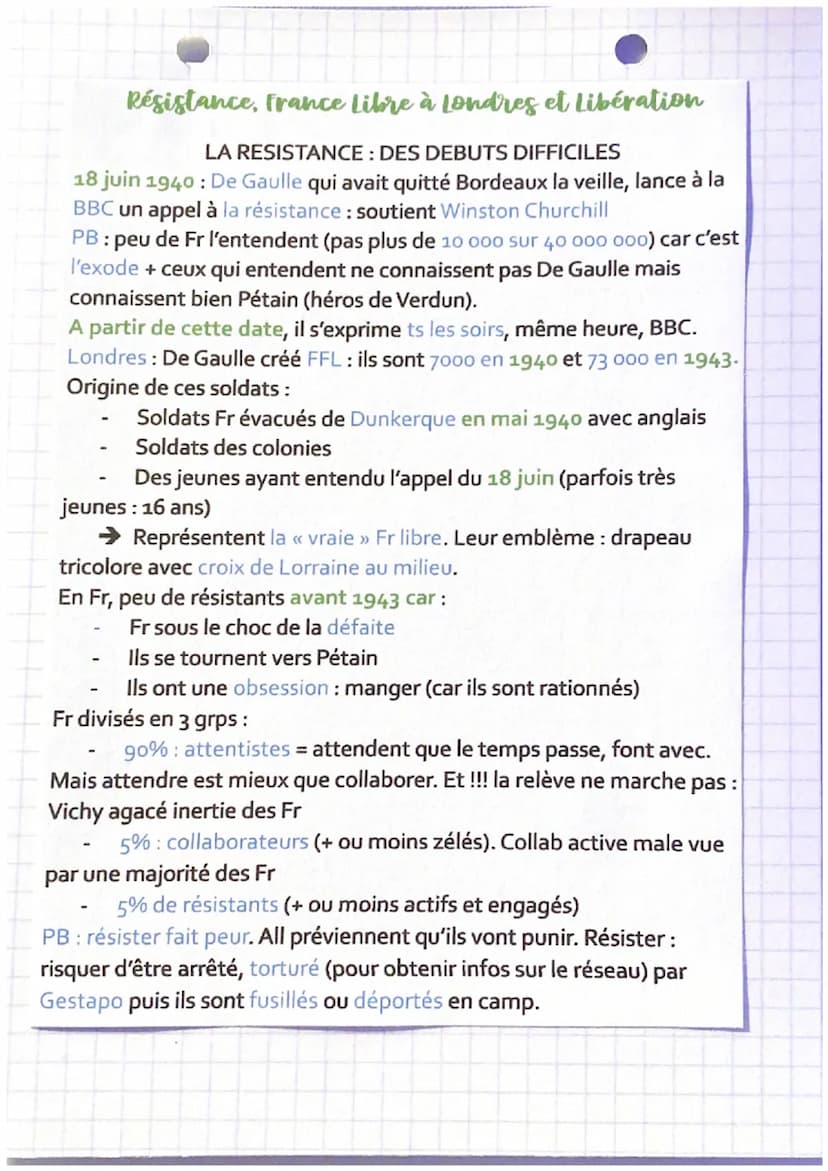 Résistance, France Libre à Londres et Libération
LA RESISTANCE : DES DEBUTS DIFFICILES
18 juin 1940 : De Gaulle qui avait quitté Bordeaux la veille, lance à la
BBC un appel à la résistance : soutient Winston Churchill
PB : peu de Fr l'entendent (pas plus de 10 000 sur 40 000 000) car c'est
l'exode + ceux qui entendent ne connaissent pas De Gaulle mais
connaissent bien Pétain (héros de Verdun).
A partir de cette date, il s'exprime ts les soirs, même heure, BBC.
Londres : De Gaulle créé FFL : ils sont 7000 en 1940 et 73 000 en 1943.
Origine de ces soldats :
- Soldats Fr évacués de Dunkerque en mai 1940 avec anglais
- Soldats des colonies
- Des jeunes ayant entendu l'appel du 18 juin (parfois très
jeunes : 16 ans)
➔ Représentent la « vraie » Fr libre. Leur emblème : drapeau
tricolore avec croix de Lorraine au milieu.
En Fr, peu de résistants avant 1943 car :
- Fr sous le choc de la défaite
- Ils se tournent vers Pétain
- Ils ont une obsession : manger (car ils sont rationnés)
Fr divisés en 3 grps :
- 90% : attentistes = attendent que le temps passe, font avec.
Mais attendre est mieux que collaborer. Et !!! la relève ne marche pas :
Vichy agacé inertie des Fr
- 5% : collaborateurs (+ ou moins zélés). Collab active male vue
par une majorité des Fr
- 5% de résistants (+ ou moins actifs et engagés)
PB : résister fait peur. All préviennent qu'ils vont punir. Résister :
risquer d'être arrêté, torturé (pour obtenir infos sur le réseau) par
Gestapo puis ils sont fusillés ou déportés en camp.